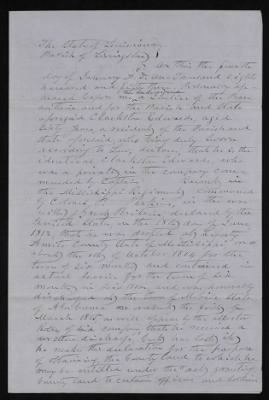 The State of Louisiana
Parish of Livingston
On this the fourth
day of January A. D. one Thousand eight
hundred and fifty personally ap-
peared before me a Justice of the Peace
within and for the Parish and State
aforesaid Clarkston Edwards, aged
years, a resident of the Parish and
State aforesaid who being duly sworn
according to Law, declares, that he is the
identical Clarkston Edwards, who
was a private in the company com-
manded by Captain in
the Mississippi Regiment, commanded
by Colonel in the war
with Great Britain, declared by the
United States on the 18th day of June
1812, that he was drafted at
Amite County State of Mississippi on or
about the of October 1814 for the
term of six months and continued in
actual service for the term of six
months and was honorably
discharged at the town of State
of on the
March 1815 as will appear the muster
rolls of said company, that he received a
written discharge, but has lost it
he makes this declaration for the purpose
of obtaining the bounty land to which he
may be entitled under the "act granting
bounty land to certain officers and soldiers